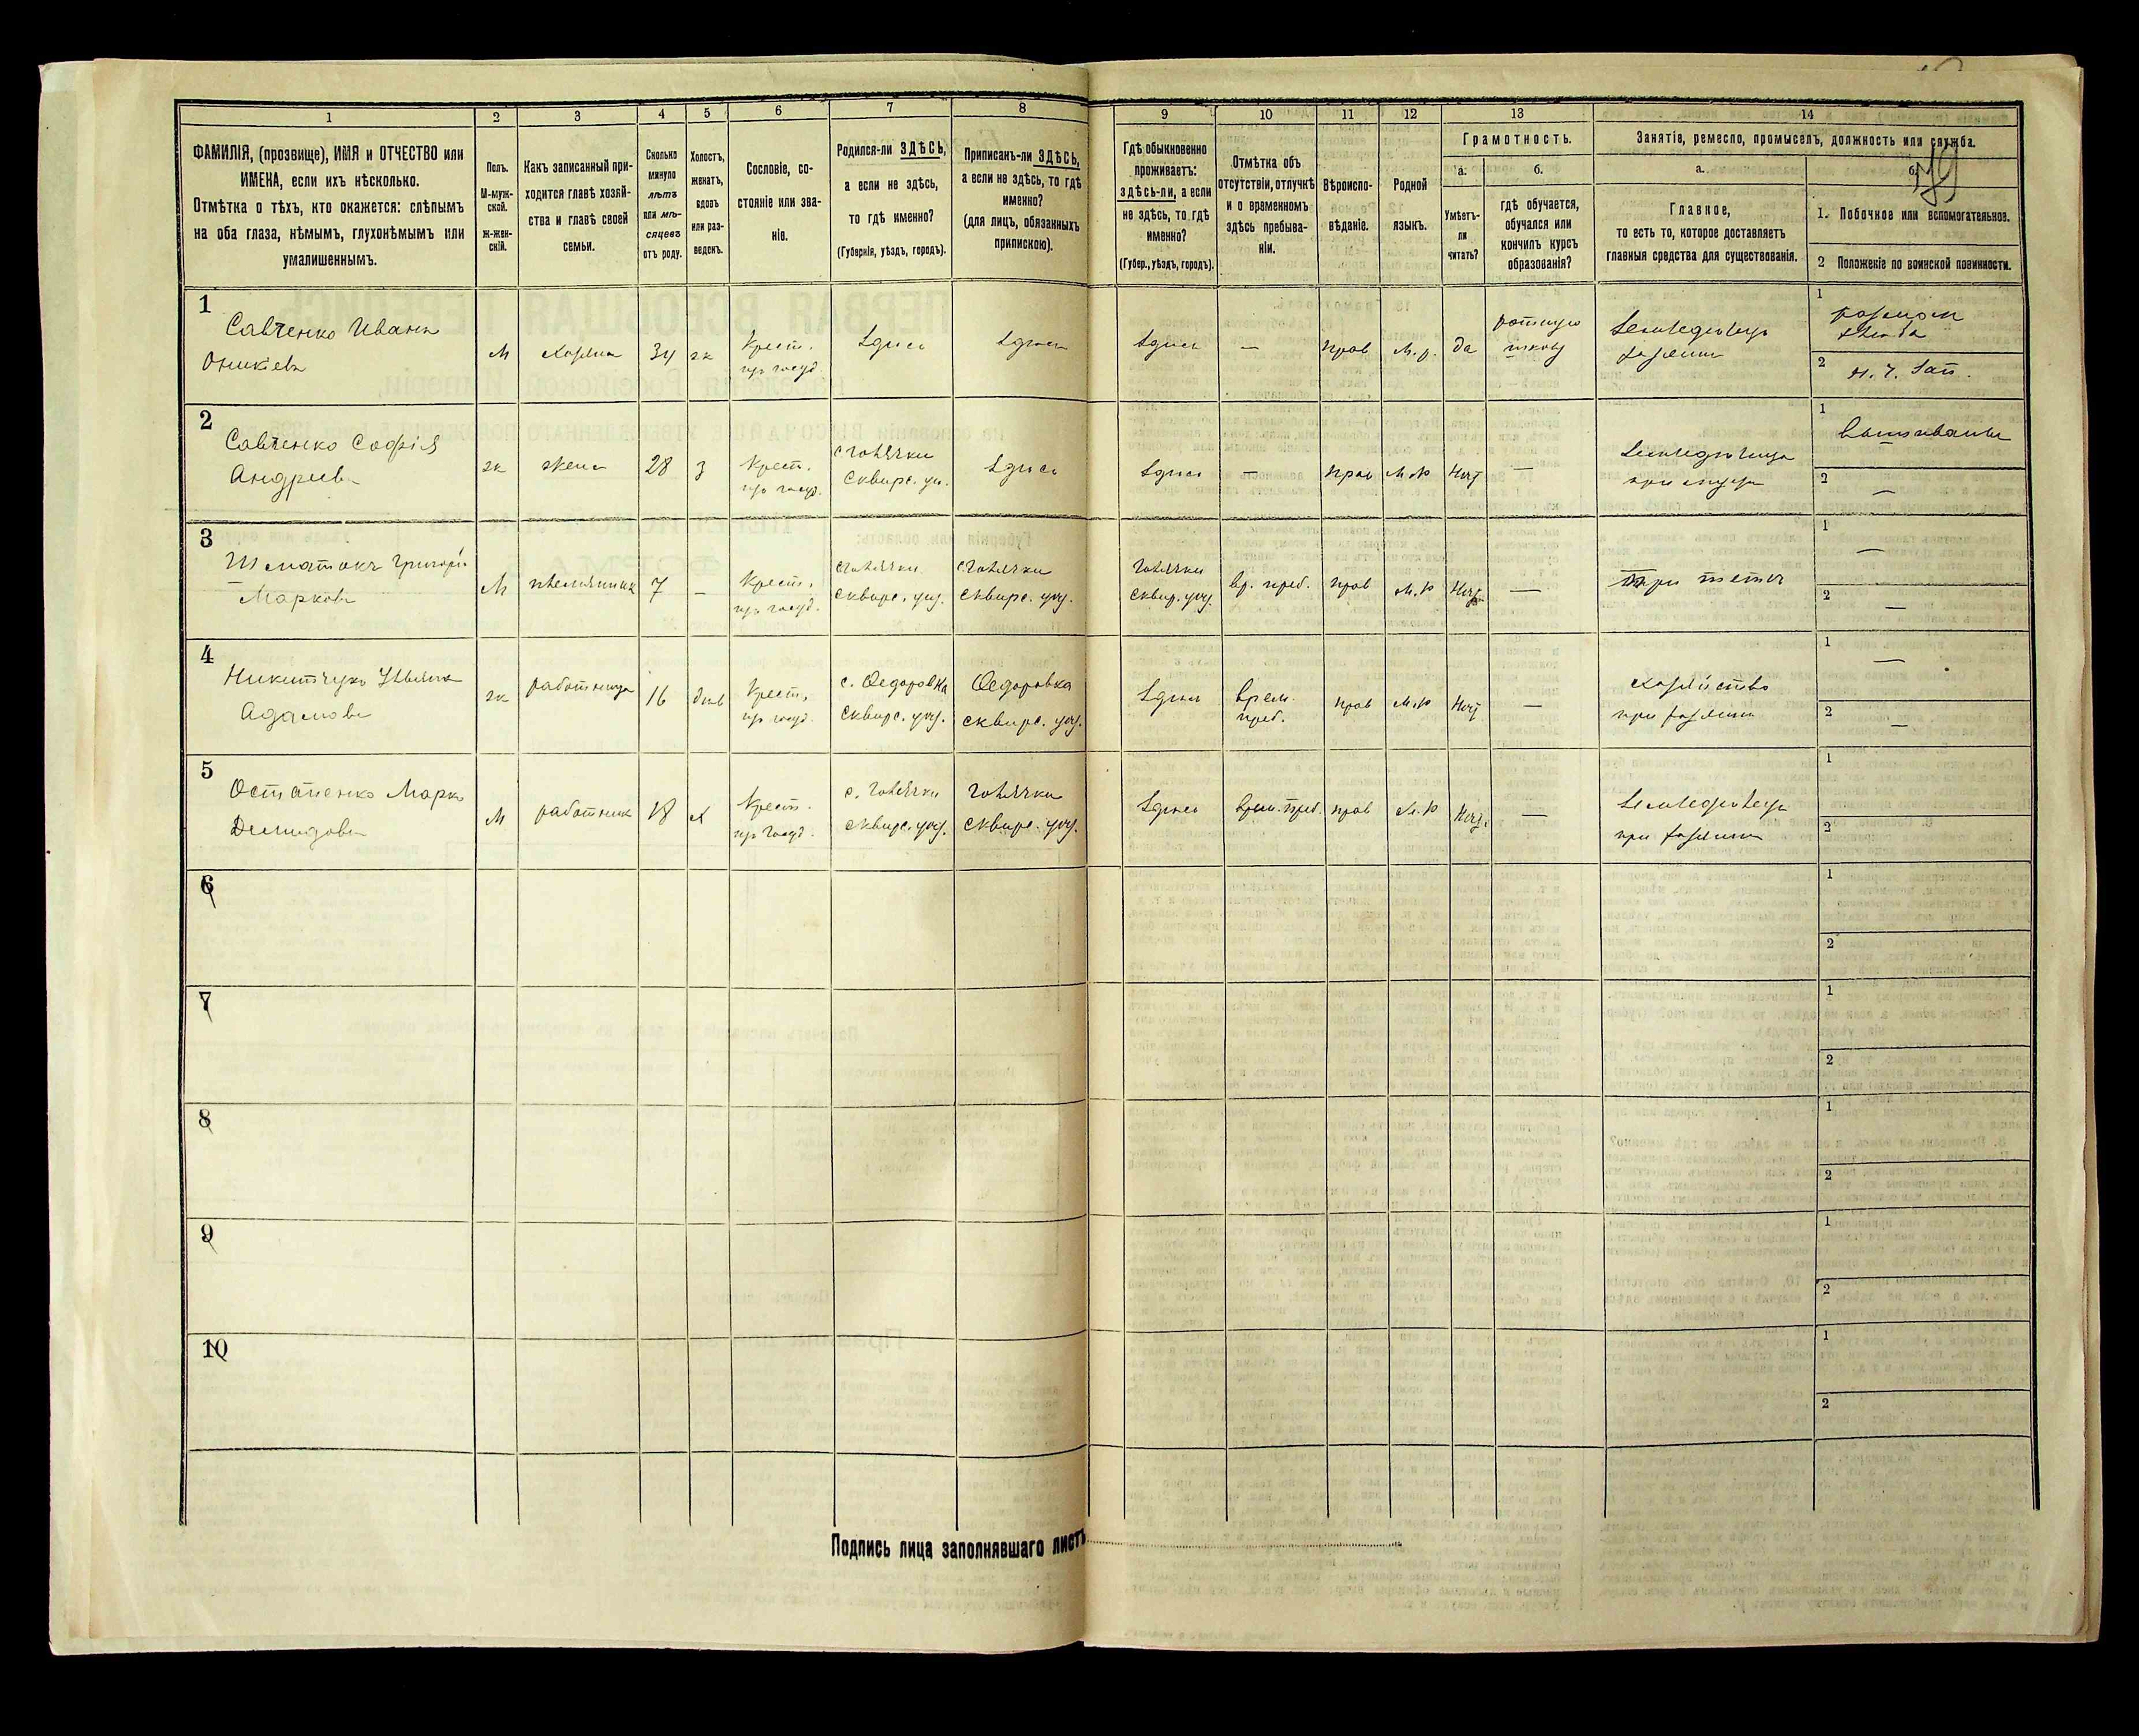 1 2 3 4 5 6 7 8 9 10 11 12 13 14
ФАМИЛІЯ, (прозвище), ИМЯ и ОТЧЕСТВО или
ИМЕНА, если ихъ нѣсколько.
Отмѣтка о тѣхъ, кто окажется: слѣпымъ
на оба глаза, нѣмымъ, глухонѣмымъ или
умалишеннымъ.
Полъ.
М-муж-
ской.
Ж-жен-
скій.
Какъ записанный при-
ходится главѣ хозяй-
ства и главѣ своей
семьи.
Сколько
минуло
лѣтъ
или мѣ-
сяцевъ
отъ роду.
Холостъ,
женатъ,
вдовъ
или раз-
веденъ.
Сословіе, со-
стояніе или зва-
ніе.
Родился-ли ЗДѢСЬ,
а если не здѣсь,
то гдѣ именно?
(Губернія, уѣздъ, городъ).
Приписанъ-ли ЗДѢСЬ,
а если не здѣсь, то гдѣ
именно?
(для лицъ, обязанныхъ
припискою).
Гдѣ обыкновенно
проживаетъ:
здѣсь-ли, а если
не здѣсь, то гдѣ
именно?
(Губер., уѣздъ, городъ).
Отмѣтка объ
отсутствіи, отлучкѣ
и о временномъ
здѣсь пребыва-
ніи.
Вѣроиспо-
вѣданіе.
Родной
языкъ.
Грамотность.
а.
Умѣетъ-
ли
читать?
б.
гдѣ обучается,
обучался или
кончилъ курсъ
образованія?
Занятіе, ремесло, промыселъ, должность или служба.
а.
Главное,
то есть то, которое доставляетъ
главныя средства для существованія.
б.
79
1. Побочное или вспомогательное.
2 Положеніе по воинской повинности.
1
Савченко Иванъ
Оникіевъ
М
хозяинъ
34
ж
Крест.
из госуд.
Здѣсь
Здѣсь
Здѣсь
—
прав
М.р.
да
ротную
школу
Земледѣлецъ
хозяинъ
1
2
2
Савченко Софія
Андреева
ж
жена
28
з
Крест.
из госуд.
с Говячки
Сквирс. уѣ.
Здѣсь
Здѣсь
—
прав
М.р
Нѣтъ
—
Земледѣлица
при мужѣ
1
Вышиванье
2
—
3
Григорій
Марковъ
М
племянникъ
7
–
Крест.
из госуд.
Говячки
Сквирс. уѣз.
Говячки
Сквирс. уѣз.
Говячки
Сквир. уѣз.
вр. преб.
прав
М.р
Нѣтъ
—
При теткѣ
1
—
2
—
4
Никитчукъ Ульяна
Адамова
ж
работница
16
дѣв
Крест.
из госуд.
с. Ѳедоровка
Сквирс. уѣз.
Ѳедоровка
Сквирс. уѣз.
Здѣсь
врем.
преб.
прав
М.р
Нѣтъ
—
хозяйство
при хозяинѣ
1
—
2
—
5
Остапенко Марко
Демидовъ
М
работник
18
х
Крест.
из госуд.
с. Говячки
Сквирс. уѣз.
Говячки
Сквирс. уѣз.
Здѣсь
врем. преб.
прав
М.р
Нѣтъ
—
Земледѣлецъ
при хозяинѣ
1
2
6
1
2
7
1
2
8
1
2
9
1
2
10
1
2
Подпись лица заполнявшаго листъ